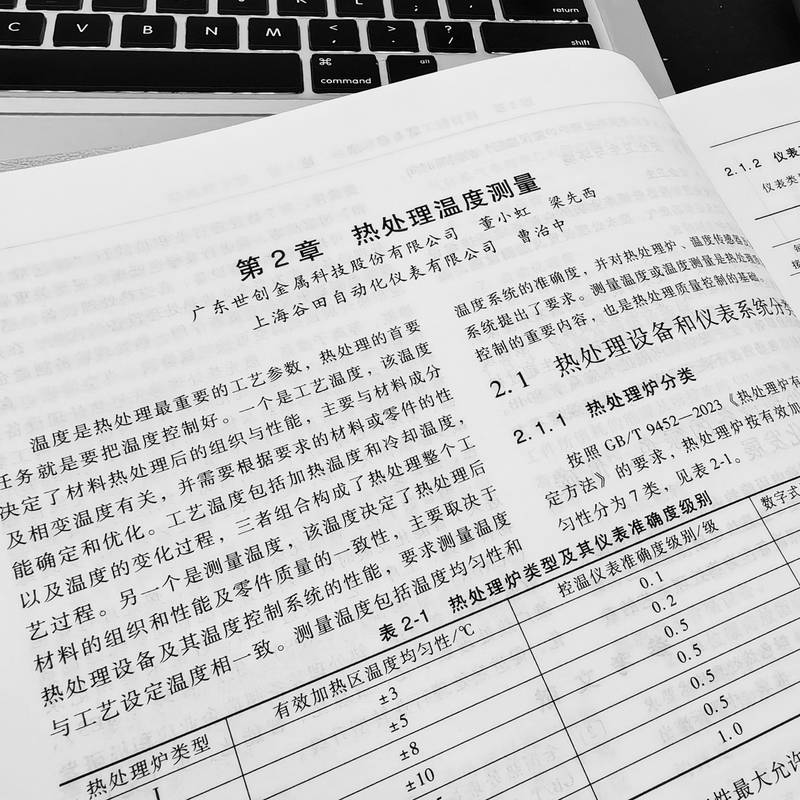 return
C
V
B
N
M
<
,
>
.
?
/
shift
⌘
command
alt
第2章 热处理温度测量
广东世创金属科技股份有限公司 董小虹 梁先西
上海谷田自动化仪表有限公司 曹治中
温度是热处理最重要的工艺参数,热处理的首要
任务就是要把温度控制好。一个是工艺温度,该温度
决定了材料热处理后的组织与性能,主要与材料成分
及相变温度有关,并需要根据要求的材料或零件的性
能确定和优化。工艺温度包括加热温度和冷却温度,
以及温度的变化过程,三者组合构成了热处理整个工
艺过程。另一个是测量温度,该温度决定了热处理后
材料的组织和性能及零件质量的一致性,主要取决于
热处理设备及其温度控制系统的性能,要求测量温度
与工艺设定温度相一致。测量温度包括温度均匀性和
温度系统的准确度,并对热处理炉、温度传感器及
系统提出了要求。测量温度或温度测量是热处理
控制的重要内容,也是热处理质量控制的基础。
2.1 热处理设备和仪表系统分类
2.1.1 热处理炉分类
按照 GB/T 9452—2023《热处理炉有
定方法》的要求,热处理炉按有效加
匀性分为7类,见表2-1。
表2-1 热处理炉类型及其仪表准确度级别
热处理炉类型
有效加热区温度均匀性/℃
控温仪表准确度级别/级
数字式
I
±3
0.1
±5
0.2
±8
0.5
±10
0.5
0.5
1.0
2.1.2 仪表
仪表类
性最大允许